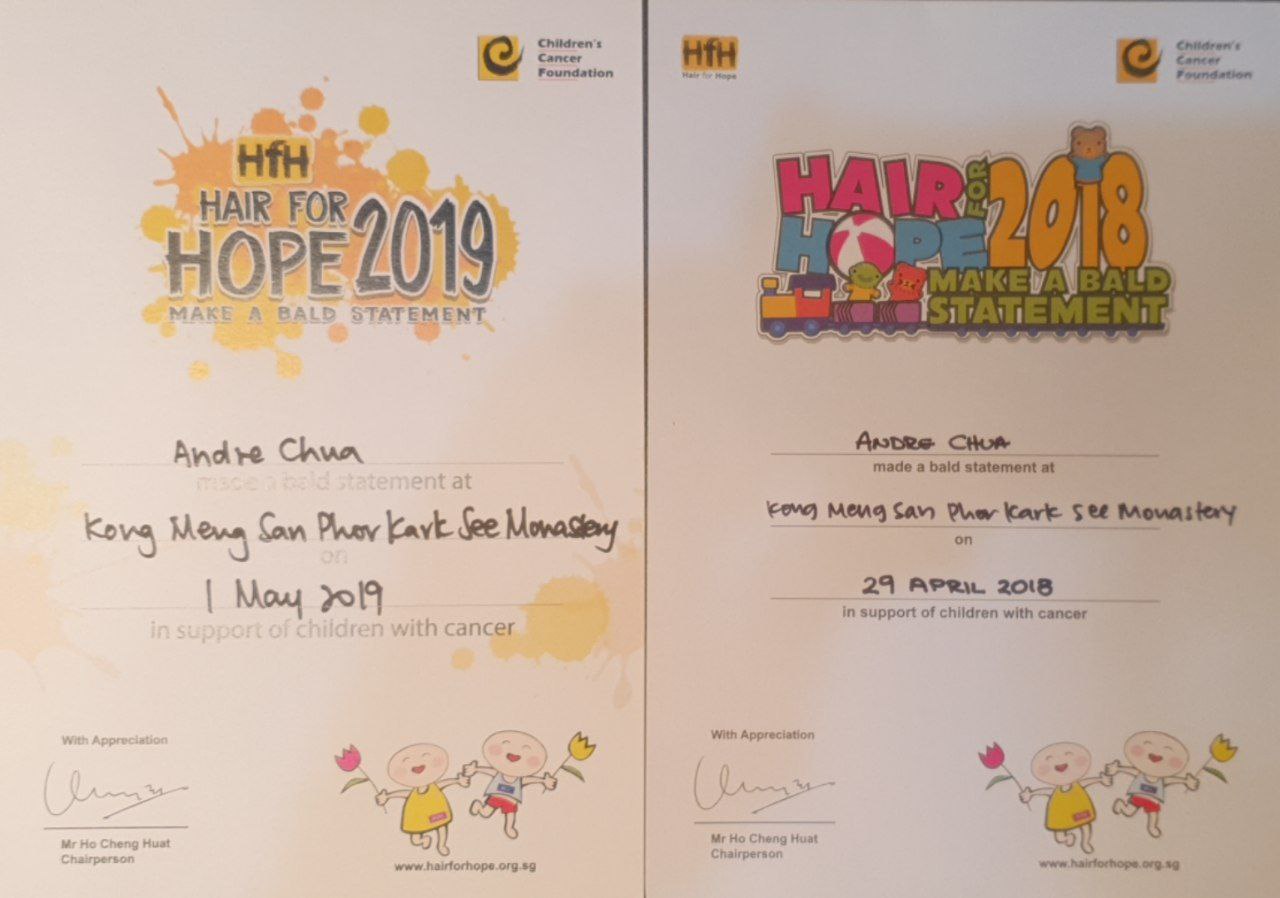 Children's
Cancer
Foundation
HfH
HAIR FOR
HOPE 2019
MAKE A BALD STATEMENT
Andre Chua
made a bald statement at
Kong Meng San Phor Kark See Monastery
on
1 May 2019
in support of children with cancer
With Appreciation
Mr Ho Cheng Huat
Chairperson
www.hairforhope.org.sg
HfH
Hair for Hope
Children's
Cancer
Foundation
HAIR FOR
HOPE 2018
MAKE A BALD
STATEMENT
ANDRE CHUA
made a bald statement at
Kong Meng San Phor Kark See Monastery
on
29 APRIL 2018
in support of children with cancer
With Appreciation
Mr Ho Cheng Huat
Chairperson
www.hairforhope.org.sg